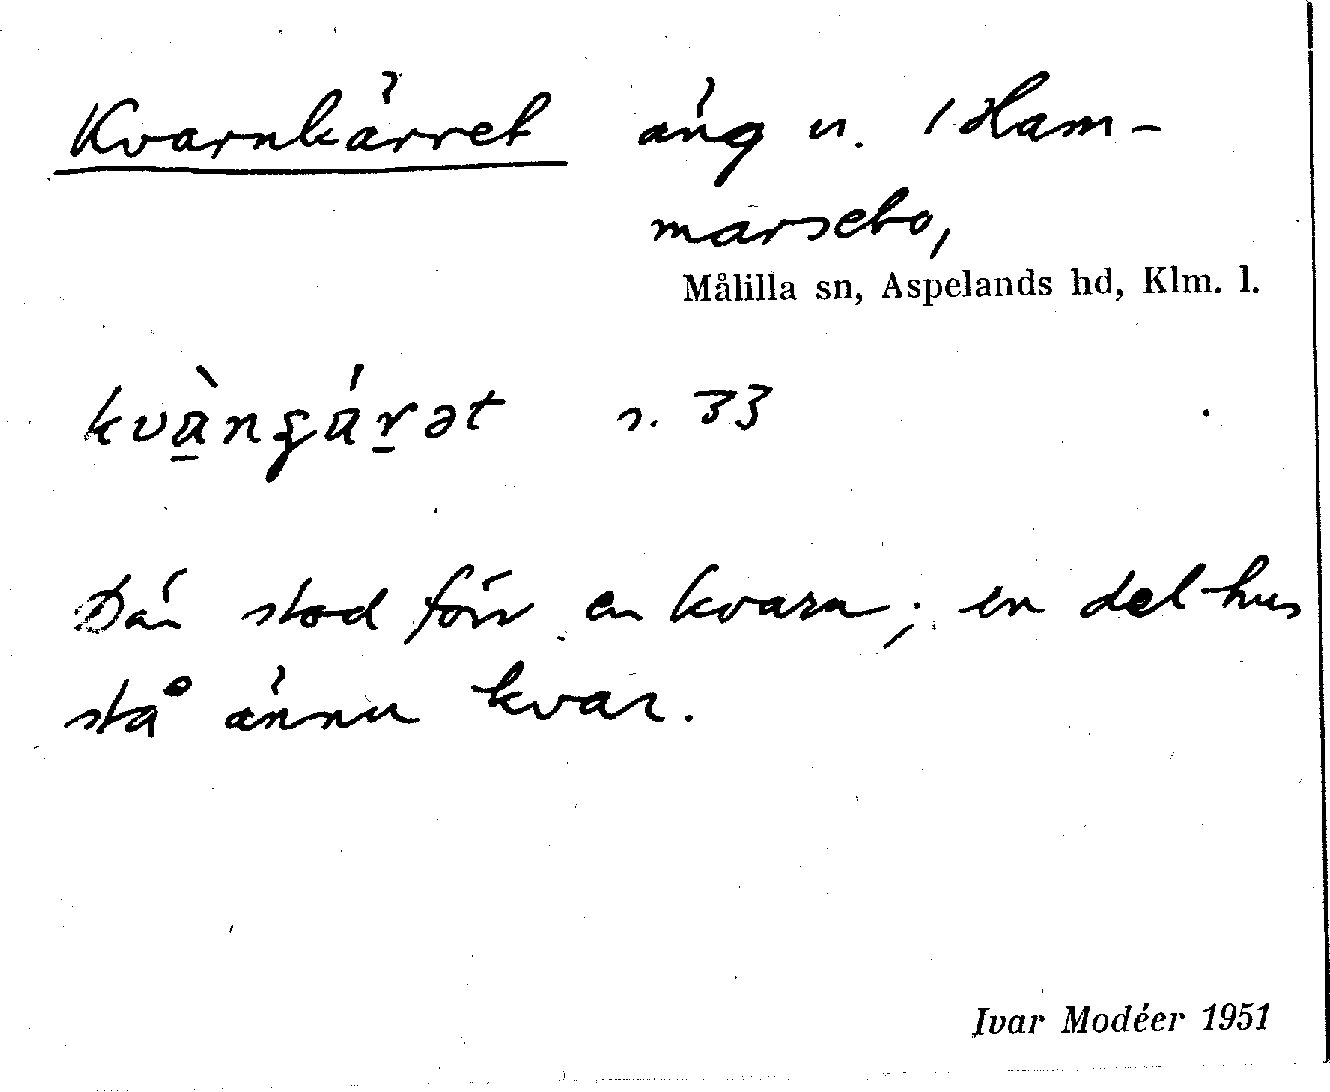 Kvarnkärret äng u. Ham-
marsebo,
Målilla sn, Aspelands hd, Klm. l.
kvàngárət s. 33
Där stod förr en kvarn; en del hus
stå ännu kvar.
Ivar Modéer 1951